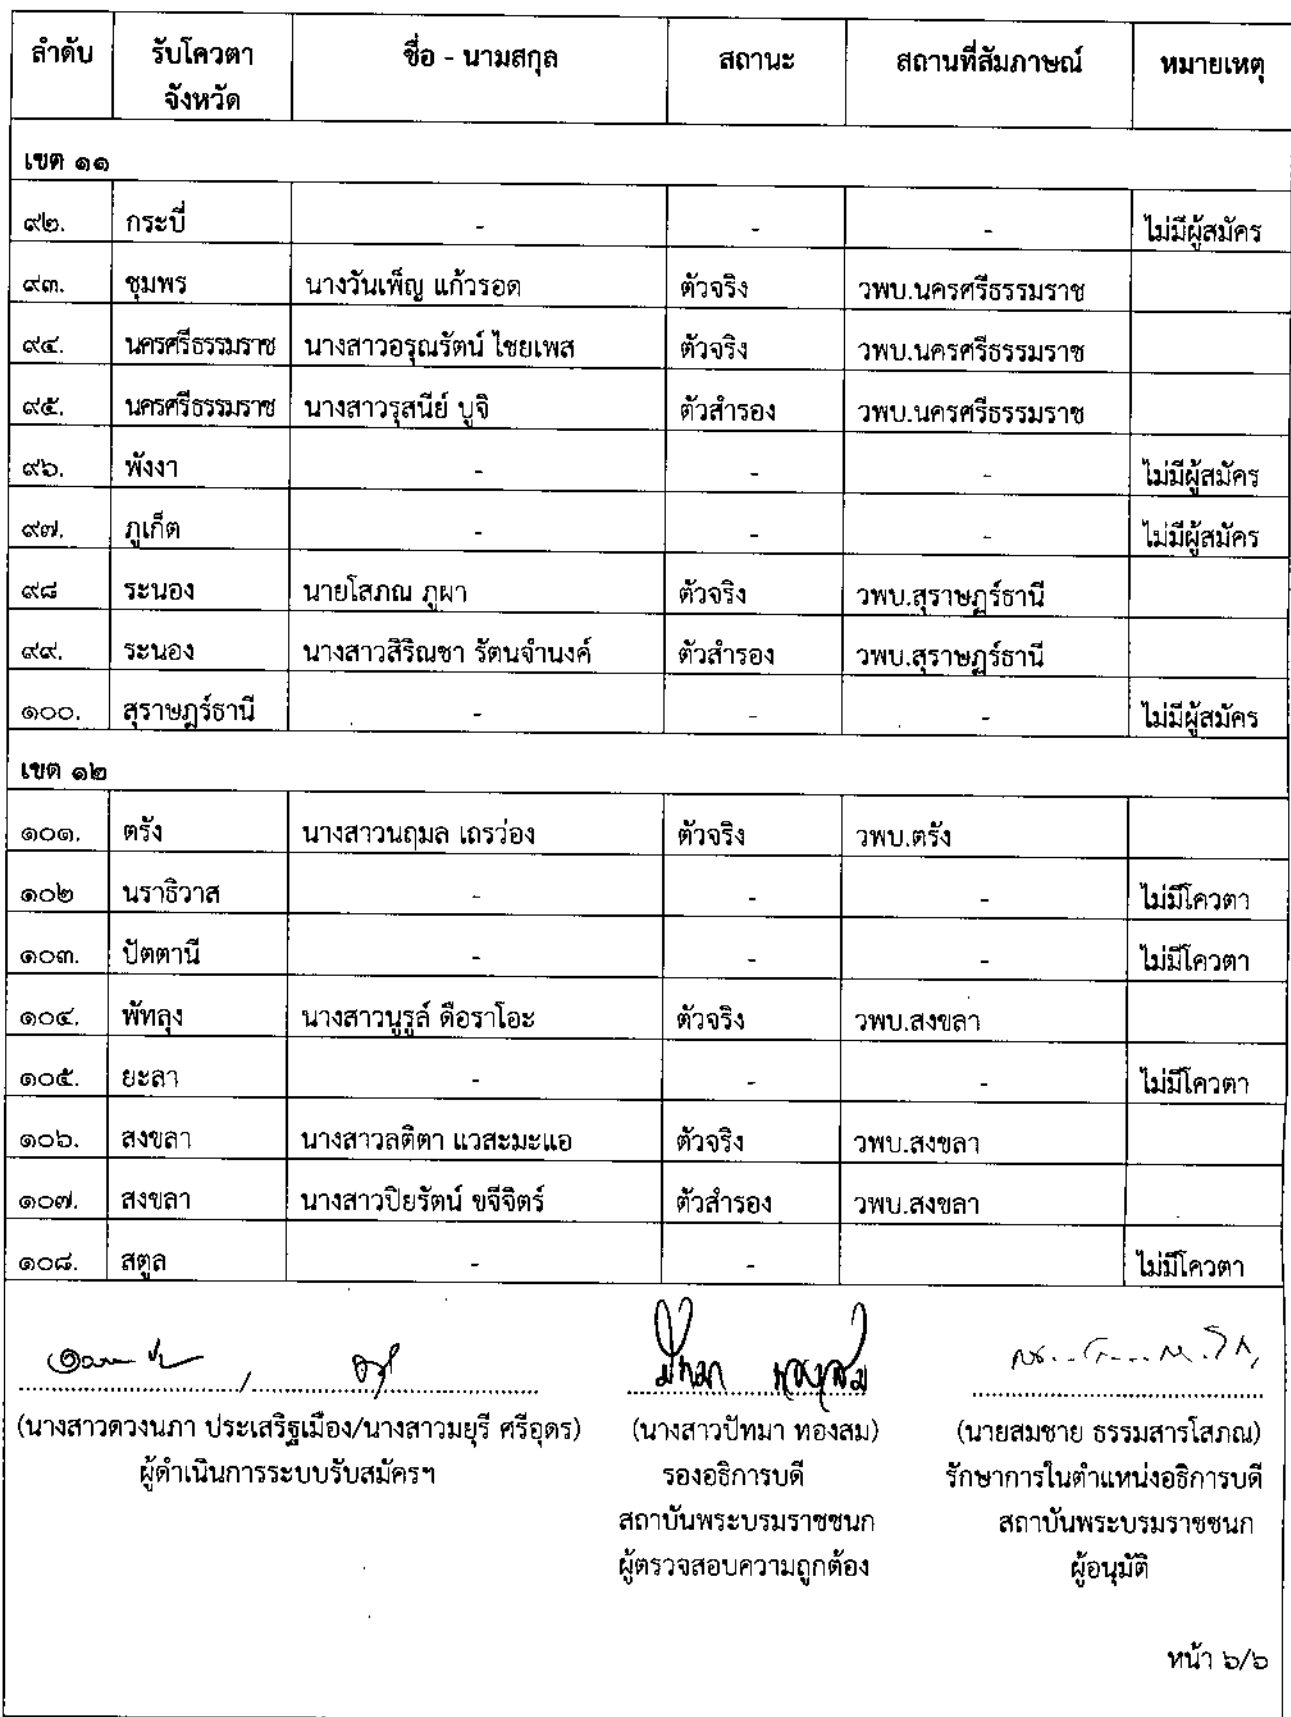 ลำดับ รับโควตา ชื่อ - นามสกุล สถานะ สถานที่สัมภาษณ์ หมายเหตุ
จังหวัด
เขต ๑๑
๙๒. กระบี่ - - - ไม่มีผู้สมัคร
๙๓. ชุมพร นางวันเพ็ญ แก้วรอด ตัวจริง วพบ.นครศรีธรรมราช
๙๔. นครศรีธรรมราช นางสาวอรุณรัตน์ ไชยเพส ตัวจริง วพบ.นครศรีธรรมราช
๙๕. นครศรีธรรมราช นางสาวรุสนีย์ บูจิ ตัวสำรอง วพบ.นครศรีธรรมราช
๙๖. พังงา - - - ไม่มีผู้สมัคร
๙๗. ภูเก็ต - - - ไม่มีผู้สมัคร
๙๘ ระนอง นายโสภณ ภูผา ตัวจริง วพบ.สุราษฎร์ธานี
๙๙. ระนอง นางสาวสิริณชา รัตนจำนงค์ ตัวสำรอง วพบ.สุราษฎร์ธานี
๑๐๐. สุราษฎร์ธานี - - - ไม่มีผู้สมัคร
เขต ๑๒
๑๐๑. ตรัง นางสาวนฤมล เถรว่อง ตัวจริง วพบ.ตรัง
๑๐๒ นราธิวาส - - - ไม่มีโควตา
๑๐๓. ปัตตานี - - - ไม่มีโควตา
๑๐๔. พัทลุง นางสาวนูรูล์ ดือราโอะ ตัวจริง วพบ.สงขลา
๑๐๕. ยะลา - - - ไม่มีโควตา
๑๐๖. สงขลา นางสาวลติตา แวสะมะแอ ตัวจริง วพบ.สงขลา
๑๐๗. สงขลา นางสาวปิยรัตน์ ขจีจิตร์ ตัวสำรอง วพบ.สงขลา
๑๐๘. สตูล - - ไม่มีโควตา
ปัทมา ทองสม
(นางสาวดวงนภา ประเสริฐเมือง/นางสาวมยุรี ศรีอุดร) (นางสาวปัทมา ทองสม) (นายสมชาย ธรรมสารโสภณ)
ผู้ดำเนินการระบบรับสมัครฯ รองอธิการบดี รักษาการในตำแหน่งอธิการบดี
สถาบันพระบรมราชชนก สถาบันพระบรมราชชนก
ผู้ตรวจสอบความถูกต้อง ผู้อนุมัติ
หน้า ๖/๖